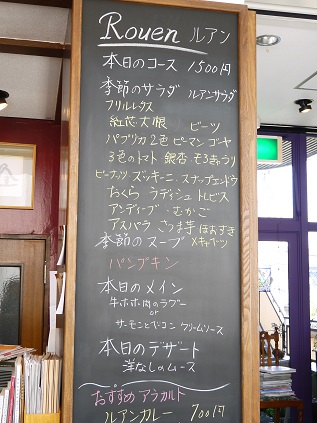 Rouen ルアン
本日のコース 1500円
季節のサラダ ルアンサラダ
フリルレタス
紅芯大根 ビーツ
パプリカ2色 ピーマン ゴーヤ
3色のトマト 銀杏 そろきゅうり
ピーナッツ ズッキーニ スナップエンドウ
おくら ラディシュ トレビス
アンディーブ むかご
アスパラ さつま芋 ほおずき
季節のスープ 芽キャベツ
パンプキン
本日のメイン
牛ホホ肉のラグー
or
サーモンとベーコン クリームソース
本日のデザート
洋なしのムース
おすすめ アラカルト
ルアンカレー 700円